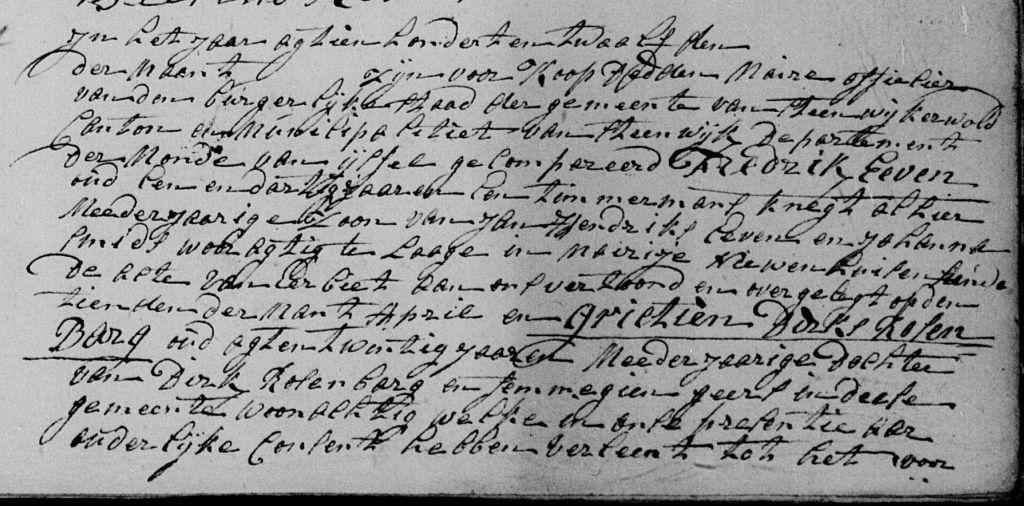 yn het jaar agtien hondert en twaalf den
der Maant zijn voor Koop Hadden Maire officier
van den burgerlijke staad der gemeente van Steenwijkerwold
Canton en Municipaliteit van Steenwijk Departement
der Monde van ijssel gecompareerd Fredrik Eeven
oud Een en dartig jaaren Een timmermans knegt alhier
Meederjaarige Zoon van Jan Hendriks Eeven en Johanna
Smids woonagtig te Laage in Mairije Niewenhuisen
de acte van Eerbiet aan ons vertoond en overgelegt op den
tienden der Mant April en Grietien Dirks Rosen
Barg oud agtentwintig jaaren Meederjaarige Dochter
van Dirk Rosenbarg en Jemmegien geers in deese
gemeente woonachtig welke in onse presentie haar
ouderlijke Consent hebben verleent tot het voor